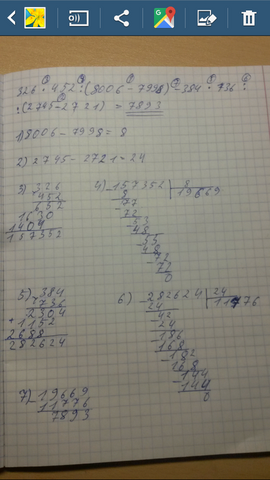 326 · 452 : (8006 - 7998) - 384 · 736 :
: (2745 - 2721) = 7893
1) 8006 - 7998 = 8
2) 2745 - 2721 = 24
3) 326
452
652
1630
1404
157352
4) - 157352 | 8
8 19669
- 77
72
- 53
48
- 55
48
- 72
72
0
5) 384
736
2304
+ 1152
2688
282624
6) - 282624 | 24
24 11776
- 42
24
- 186
168
- 182
168
- 144
144
0
7) - 19669
11776
7893